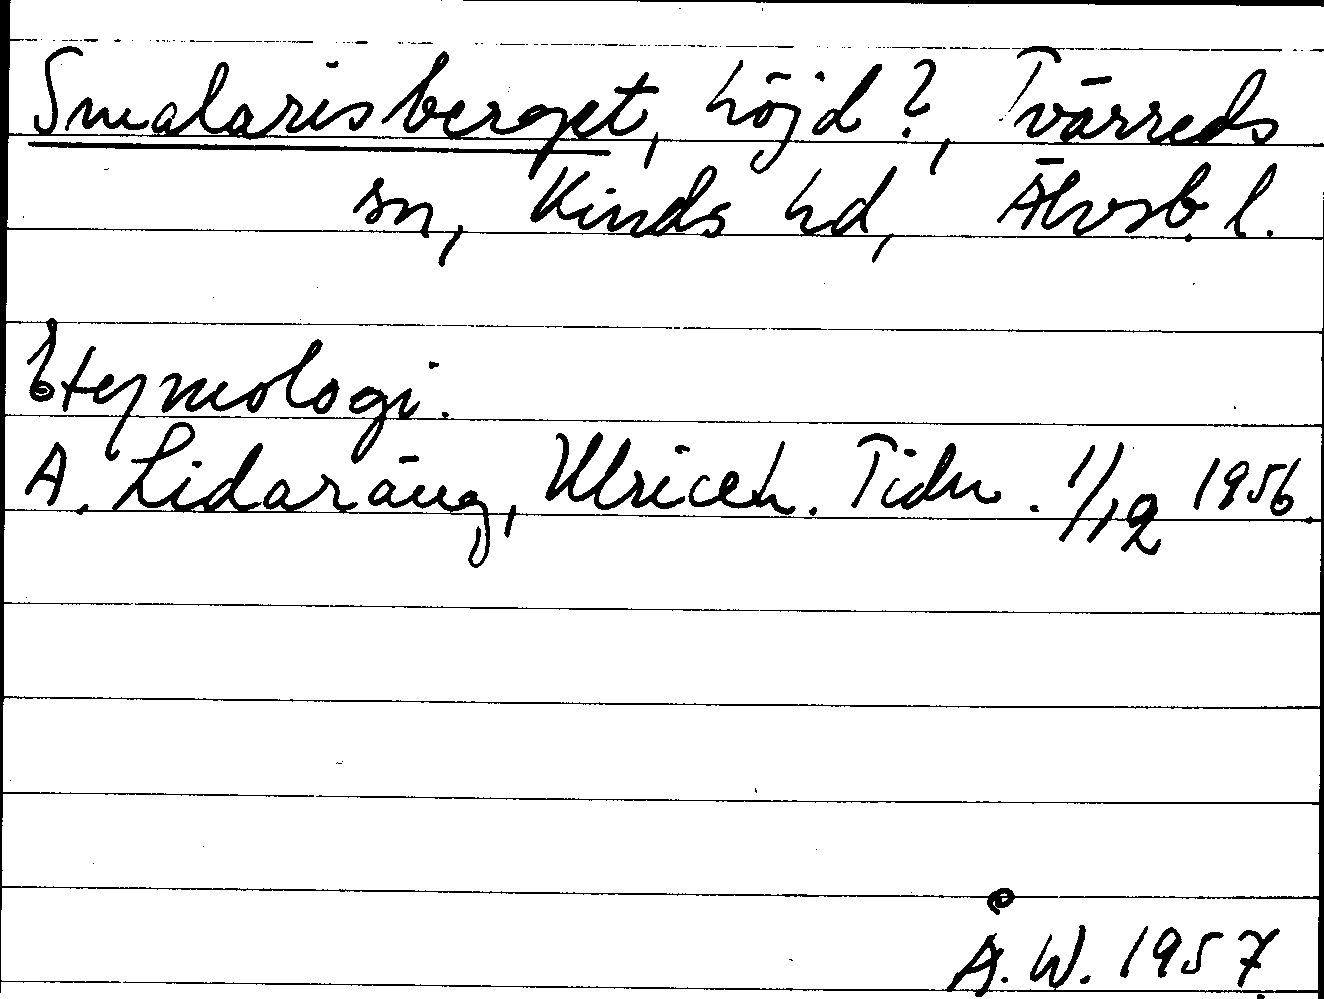 Smalarisberget, höjd?, Tvärreds
sn, Kinds hd, Älvsb. l.
Etymologi.
A. Lidaräng, Ulriceh. Tidn. 1/12 1956.
Å. W. 1957.